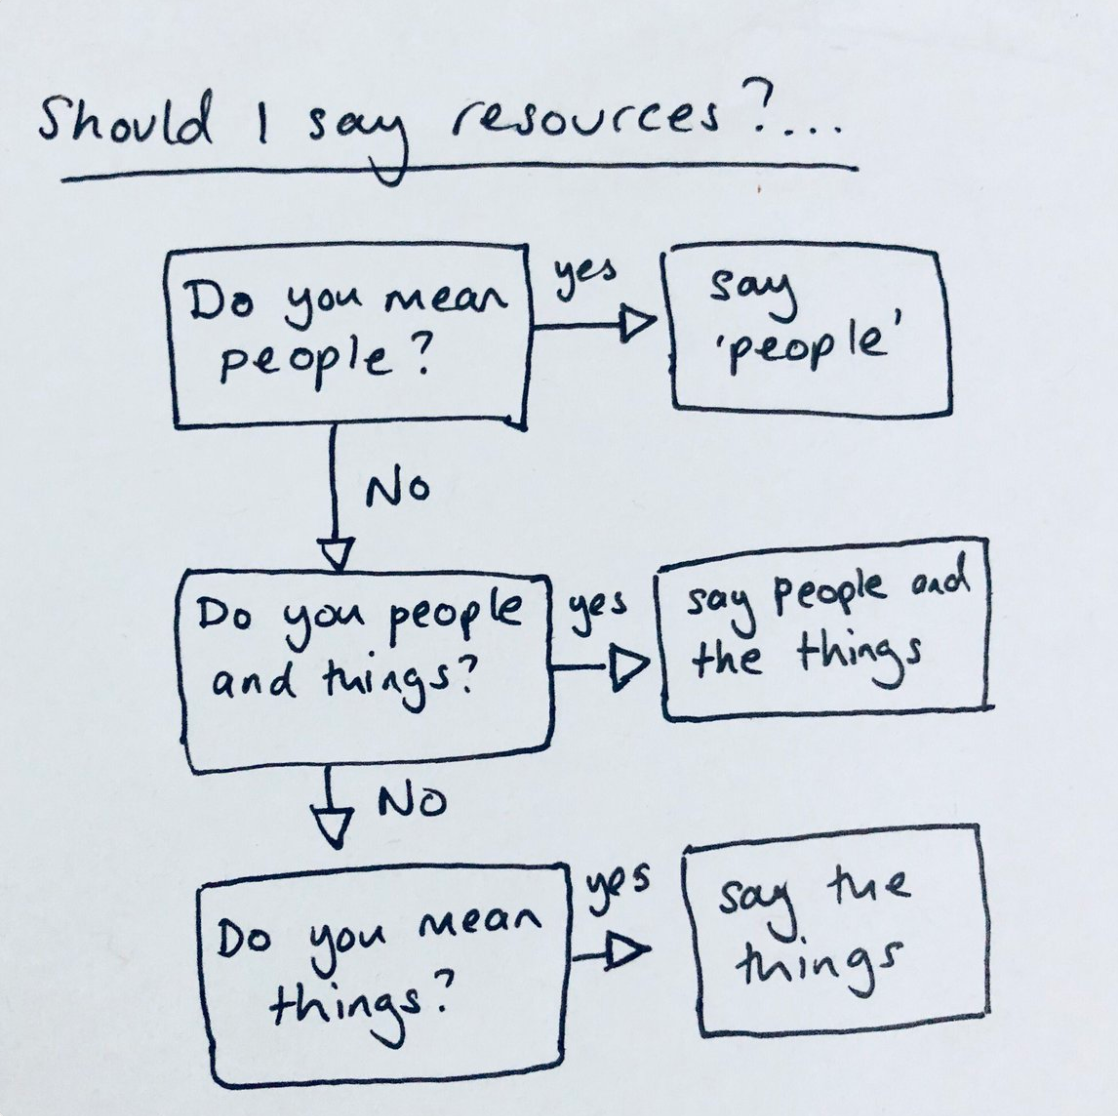 Should I say resources?...
Do you mean
people?
yes
say
'people'
No
Do you people
and things?
yes
say people and
the things
No
Do you mean
things?
yes
say the
things